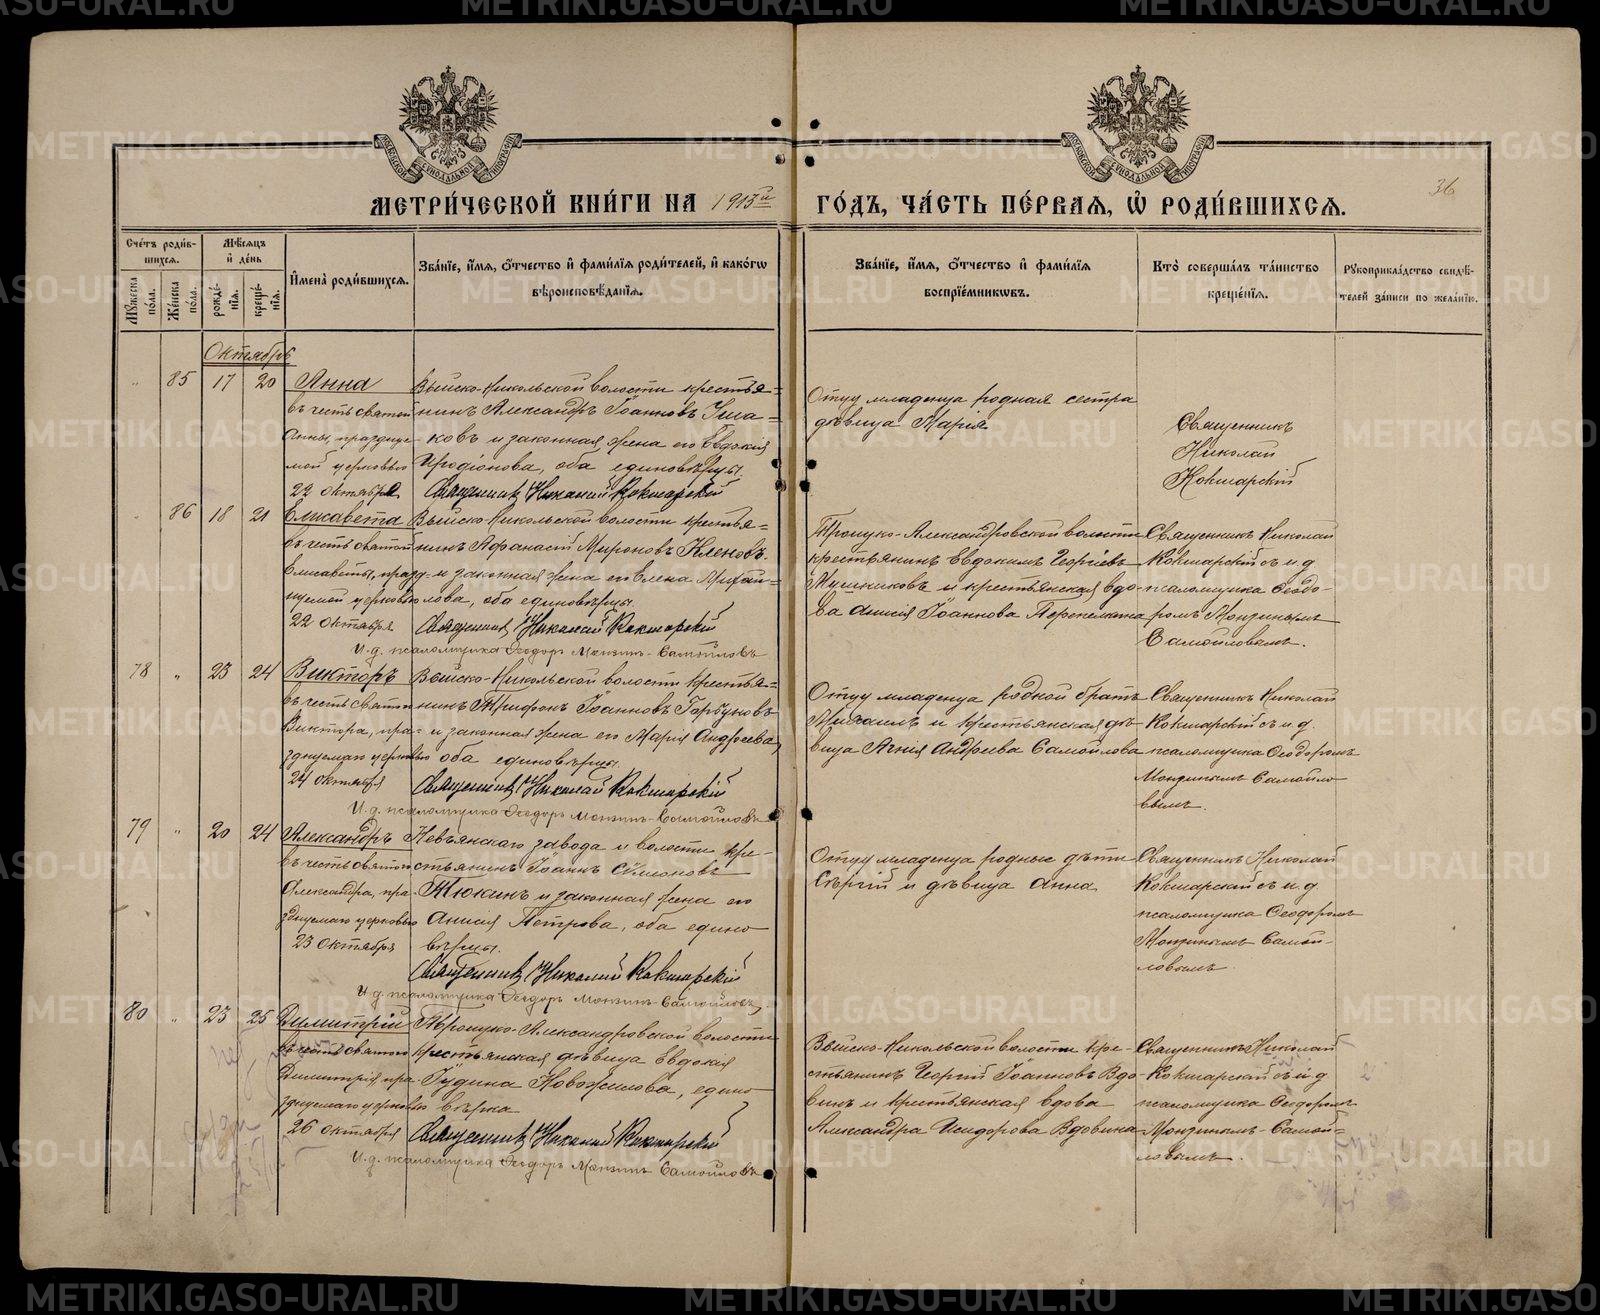 METRIKI.GASO-URAL.RU
36
МОСКОВСКОЙ СѴНОДАЛЬНОЙ ТИПОГРАФІИ
МОСКОВСКОЙ СѴНОДАЛЬНОЙ ТИПОГРАФІИ
МЕТРИ́ЧЕСКОЙ КНИ́ГИ НА 1913й ГО́ДЪ, ЧА́СТЬ ПЕ́РВАЯ, Ѡ РОДИ́ВШИХСЯ.
Сче́тъ роди́вшихся.
Мѹ́жеска по́ла.
Же́нска по́ла.
Мѣ́сяцъ и де́нь
рожде́нія.
креще́нія.
Имена̀ роди́вшихся.
Зва́ніе, и́мя, о́тчество и фами́лія роди́телей, и како́гѡ
вѣроисповѣ́данія.
Зва́ніе, и́мя, о́тчество и фами́лія
воспріе́мникѡвъ.
Кто̀ соверша́лъ та́инство
креще́нія.
Рукоприкла́дство свидѣ́-
телей за́писи по жела́нію.
Октябрь
„ 85 17 20 Анна
въ честь святой
Анны, празднуе-
мой церковью
22 октября
Выйско-Никольской волости крестья=
нинъ Александръ Іоанновъ Уша=
ковъ и законная жена его Евдокія
Иродіонова, оба единовѣрцы.
Священникъ Николай Кокшарскій
Отцу младенца родная сестра
дѣвица Марія
Священникъ
Николай
Кокшарскій
86 18 21 Елисавета
въ честь святой
Елисаветы, празд-
нуемой церковью
22 октября
Выйско-Никольской волости крестья=
нинъ Афанасій Мироновъ Кленовъ
и законная жена его Елена Михай-
лова, оба единовѣрцы.
Священникъ Николай Кокшарскій
И.д. псаломщика Ѳеодоръ Монзинъ-Самойловъ
Троицко-Александровской волости
крестьянинъ Евдокимъ Георгіевъ
и крестьянская вдо-
ва Анисія Іоаннова
Священникъ Николай
Кокшарскій съ и.д.
псаломщика Ѳеодо-
ромъ Монзинымъ
Самойловымъ.
78 „ 23 24 Викторъ
въ честь святого
Виктора, пра-
зднуемаго церковью
24 октября
Выйско-Никольской волости крестья=
нинъ Трифонъ Іоанновъ Горбуновъ
и законная жена его Марія Андреева,
оба единовѣрцы.
Священникъ Николай Кокшарскій
И.д. псаломщика Ѳеодоръ Монзинъ-Самойловъ
Отцу младенца родной братъ
Михаилъ и крестьянская дѣ-
вица Агнія Андреева Самойлова
Священникъ Николай
Кокшарскій съ и.д.
псаломщика Ѳеодоромъ
Монзинымъ Самойло-
вымъ.
79 „ 20 24 Александръ
въ честь святого
Александра, пра-
зднуемаго церковью
23 октября
Невьянскаго завода и волости кре-
стьянинъ Іоаннъ Сѵмеоновъ
Тюкинъ и законная жена его
Анисія Петрова, оба едино-
вѣрцы.
Священникъ Николай Кокшарскій
И.д. псаломщика Ѳеодоръ Монзинъ-Самойловъ
Отцу младенца родные дѣти
Сергій и дѣвица Анна
Священникъ Николай
Кокшарскій съ и.д.
псаломщика Ѳеодоромъ
Монзинымъ Самой-
ловымъ.
80 „ 23 25 Димитрій
въ честь святого
Димитрія пра-
зднуемаго церковью
26 октября
Троицко-Александровской волости
крестьянская дѣвица Евдокія
Іудина Новожилова, едино-
вѣрка
Священникъ Николай Кокшарскій
И.д. псаломщика Ѳеодоръ Монзинъ Самойловъ
Выйско-Никольской волости кре-
стьянинъ Георгій Іоанновъ Вдо-
винъ и крестьянская вдова
Александра Исидорова Вдовина
Священникъ Николай
Кокшарскій съ и.д.
псаломщика Ѳеодоромъ
Монзинымъ-Самой=
ловымъ.